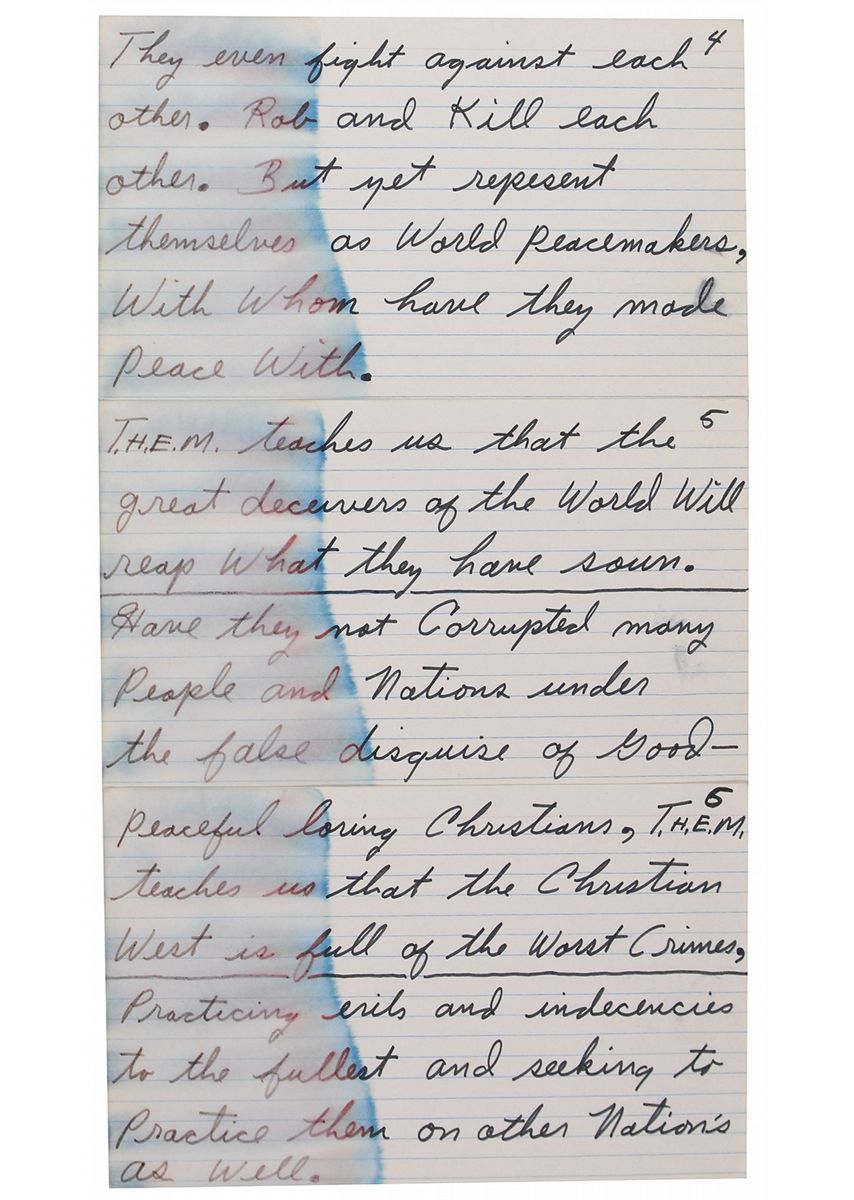 They even fight against each 4
other. Rob and Kill each
other. But yet repesent
themselves as World Peacemakers,
With Whom have they made
Peace With.
T.H.E.M. teaches us that the 5
great deceivers of the World Will
reap What they have soun.
Have they not Corrupted many
People and Nations under
the false disguise of Good—
6
Peaceful loving Christians, T.H.E.M.
teaches us that the Christian
West is full of the Worst Crimes,
Practicing evils and indecencies
to the fullest and seeking to
Practice them on other Nation's
as Well.